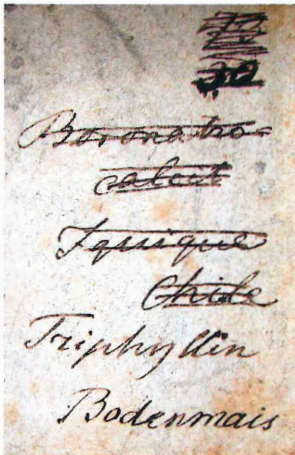 Boronatro-
calcit
Iquique
Chile
Triphyllin
Bodenmais